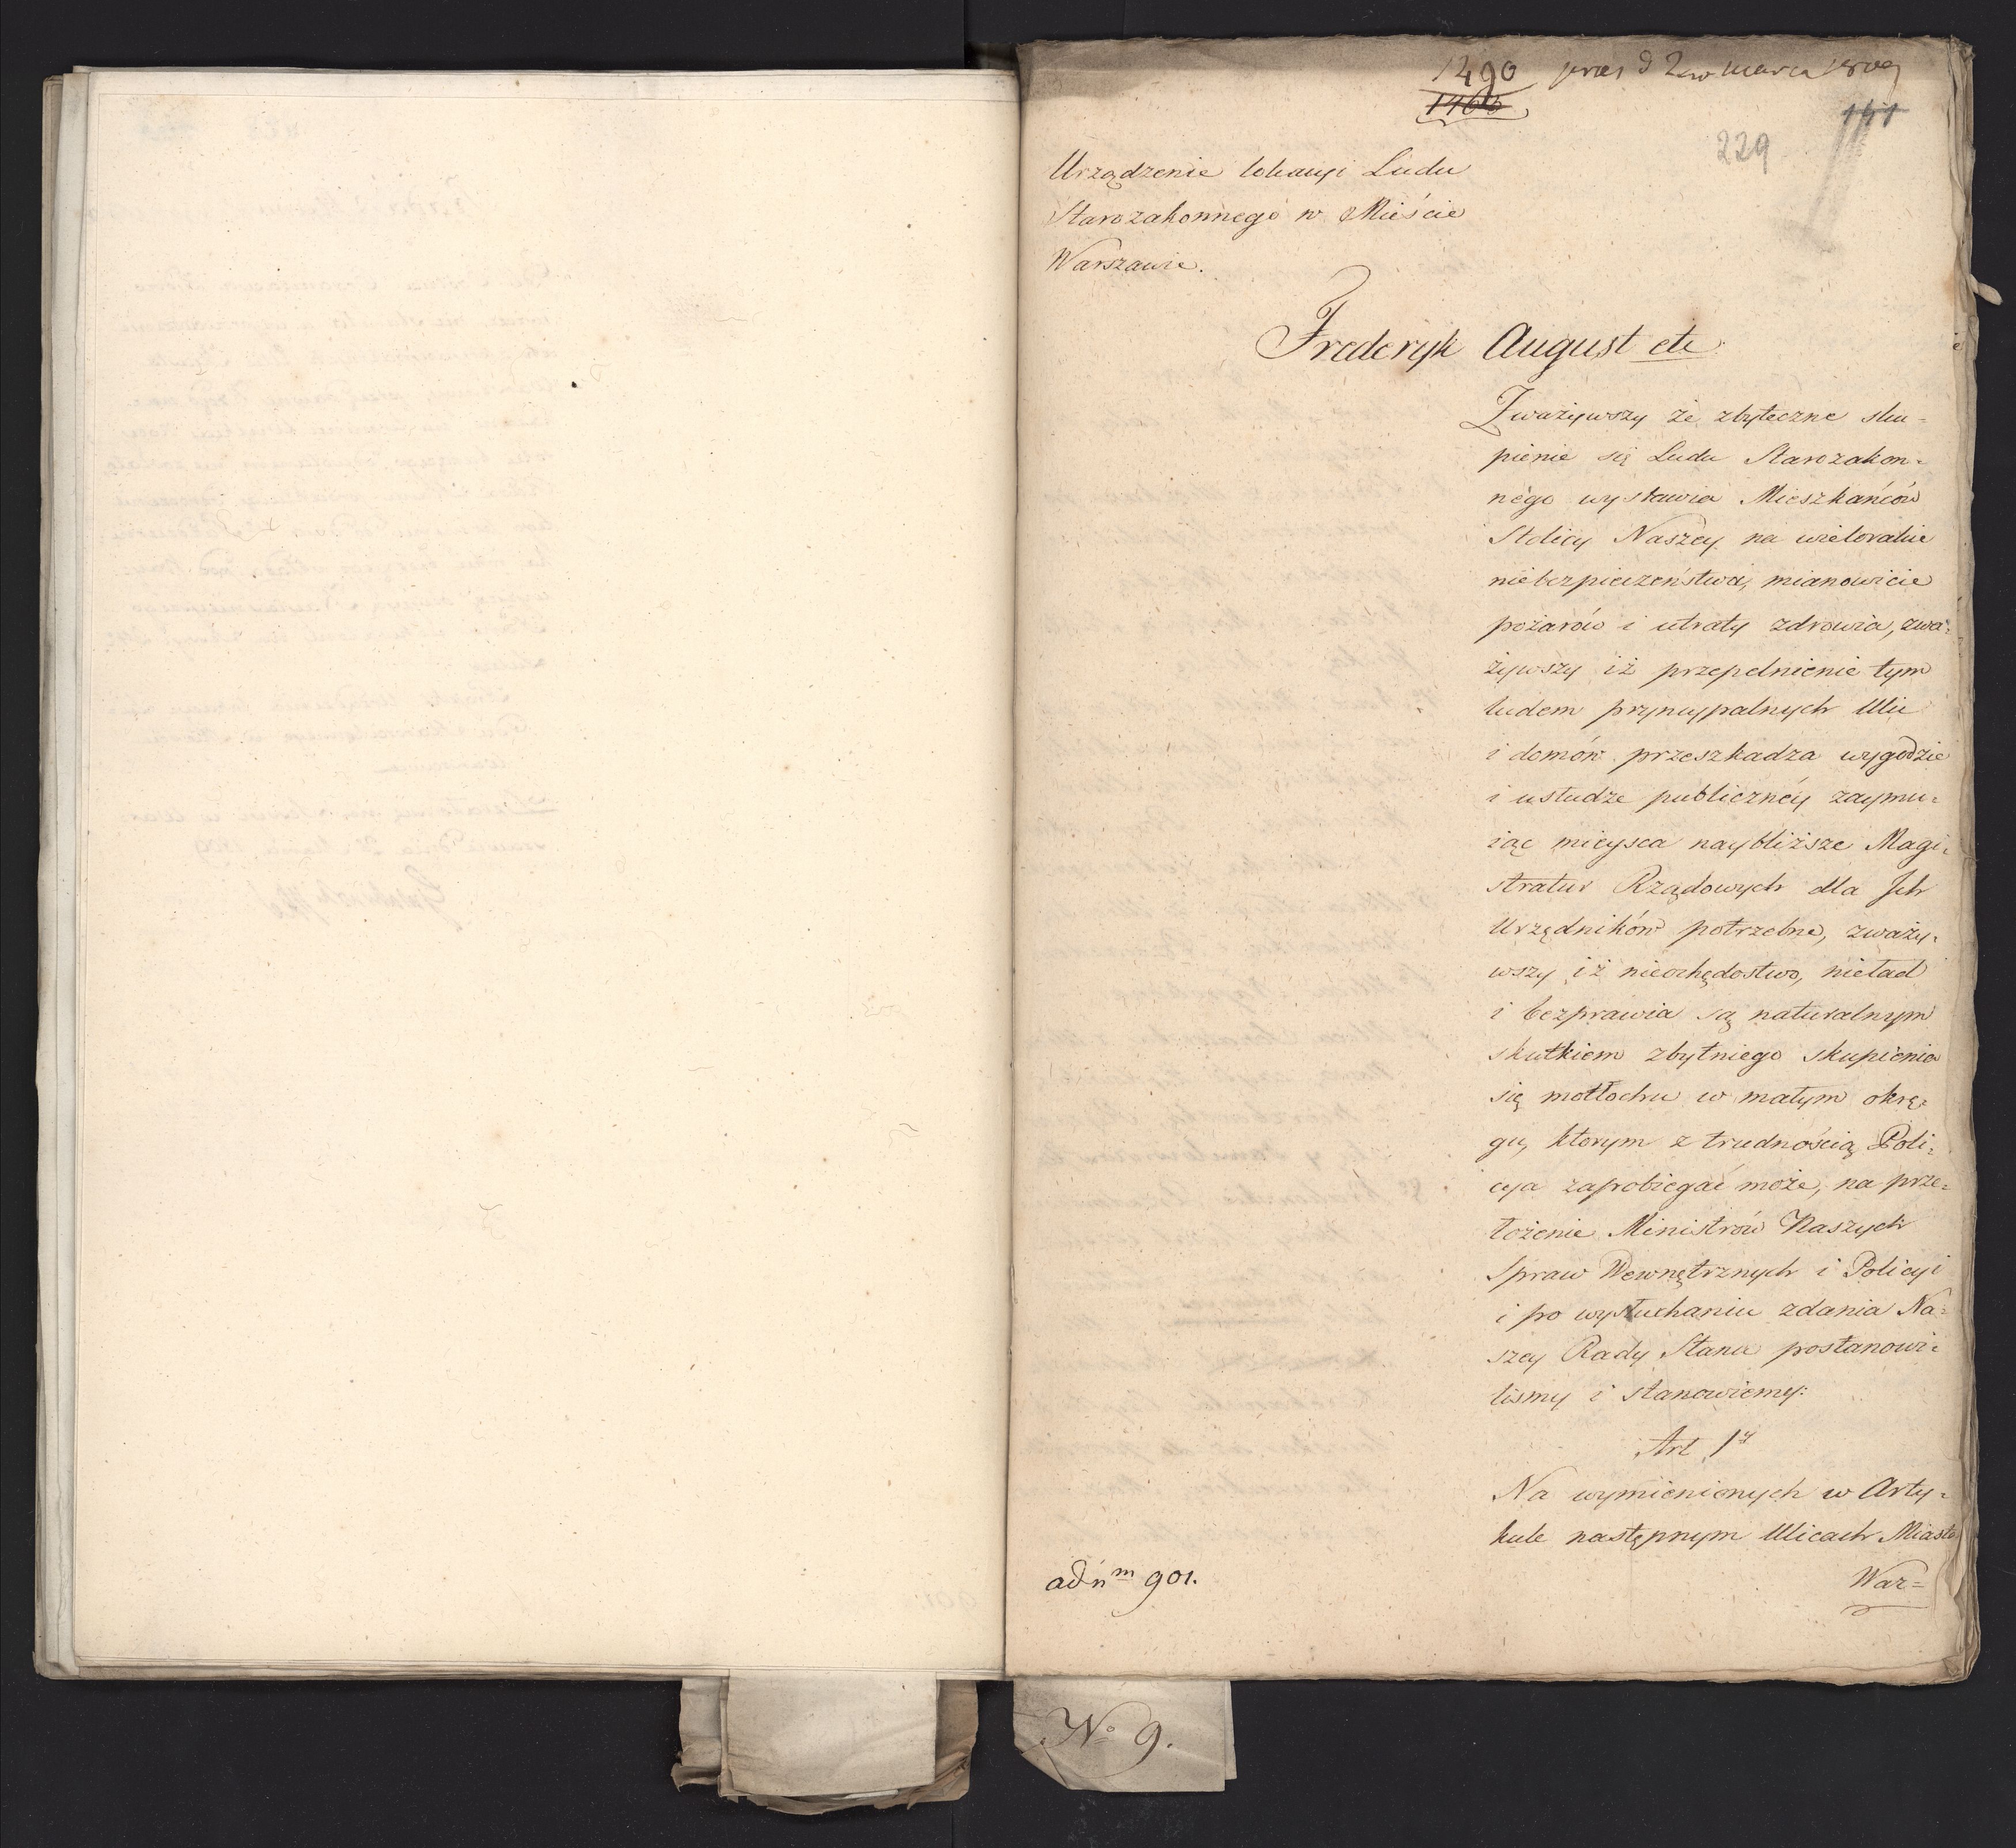 1490 pres d 2 marca 1809
1466
141
229
Urządzenie lokacyi Ludu
Starozakonnego w Mieście
Warszawie.
Frederyk August etc.
Zważywszy że zbyteczne sku-
pienie się Ludu Starozakon-
nego wystawia Mieszkańców
Stolicy Naszey na wielorakie
niebezpieczeństwa, mianowicie
pożarów i utraty zdrowia, zwa-
żywszy iż przepełnienie tym
ludem pryncypalnych Ulic
i domów przeszkadza wygodzie
i usłudze publiczney zaymu-
iąc mieysca naybliższe Magi-
stratur Rządowych dla Ich
Urzędników potrzebne, zważy-
wszy iż nieochędostwo, nieład
i bezprawia są naturalnym
skutkiem zbytniego skupienia
się motłochu w małym okrę-
gu, ktorym z trudnością Poli-
cya zapobiegać może, na prze-
łożenie Ministrów Naszych
Spraw Wewnętrznych i Policyi
i po wysłuchaniu zdania Na-
szey Rady Stanu postanowi-
lismy i stanowiemy:
Art 1y
Na wymienionych w Arty-
kule następnym Ulicach Miasta
War=
ad nm 901.
No 9.